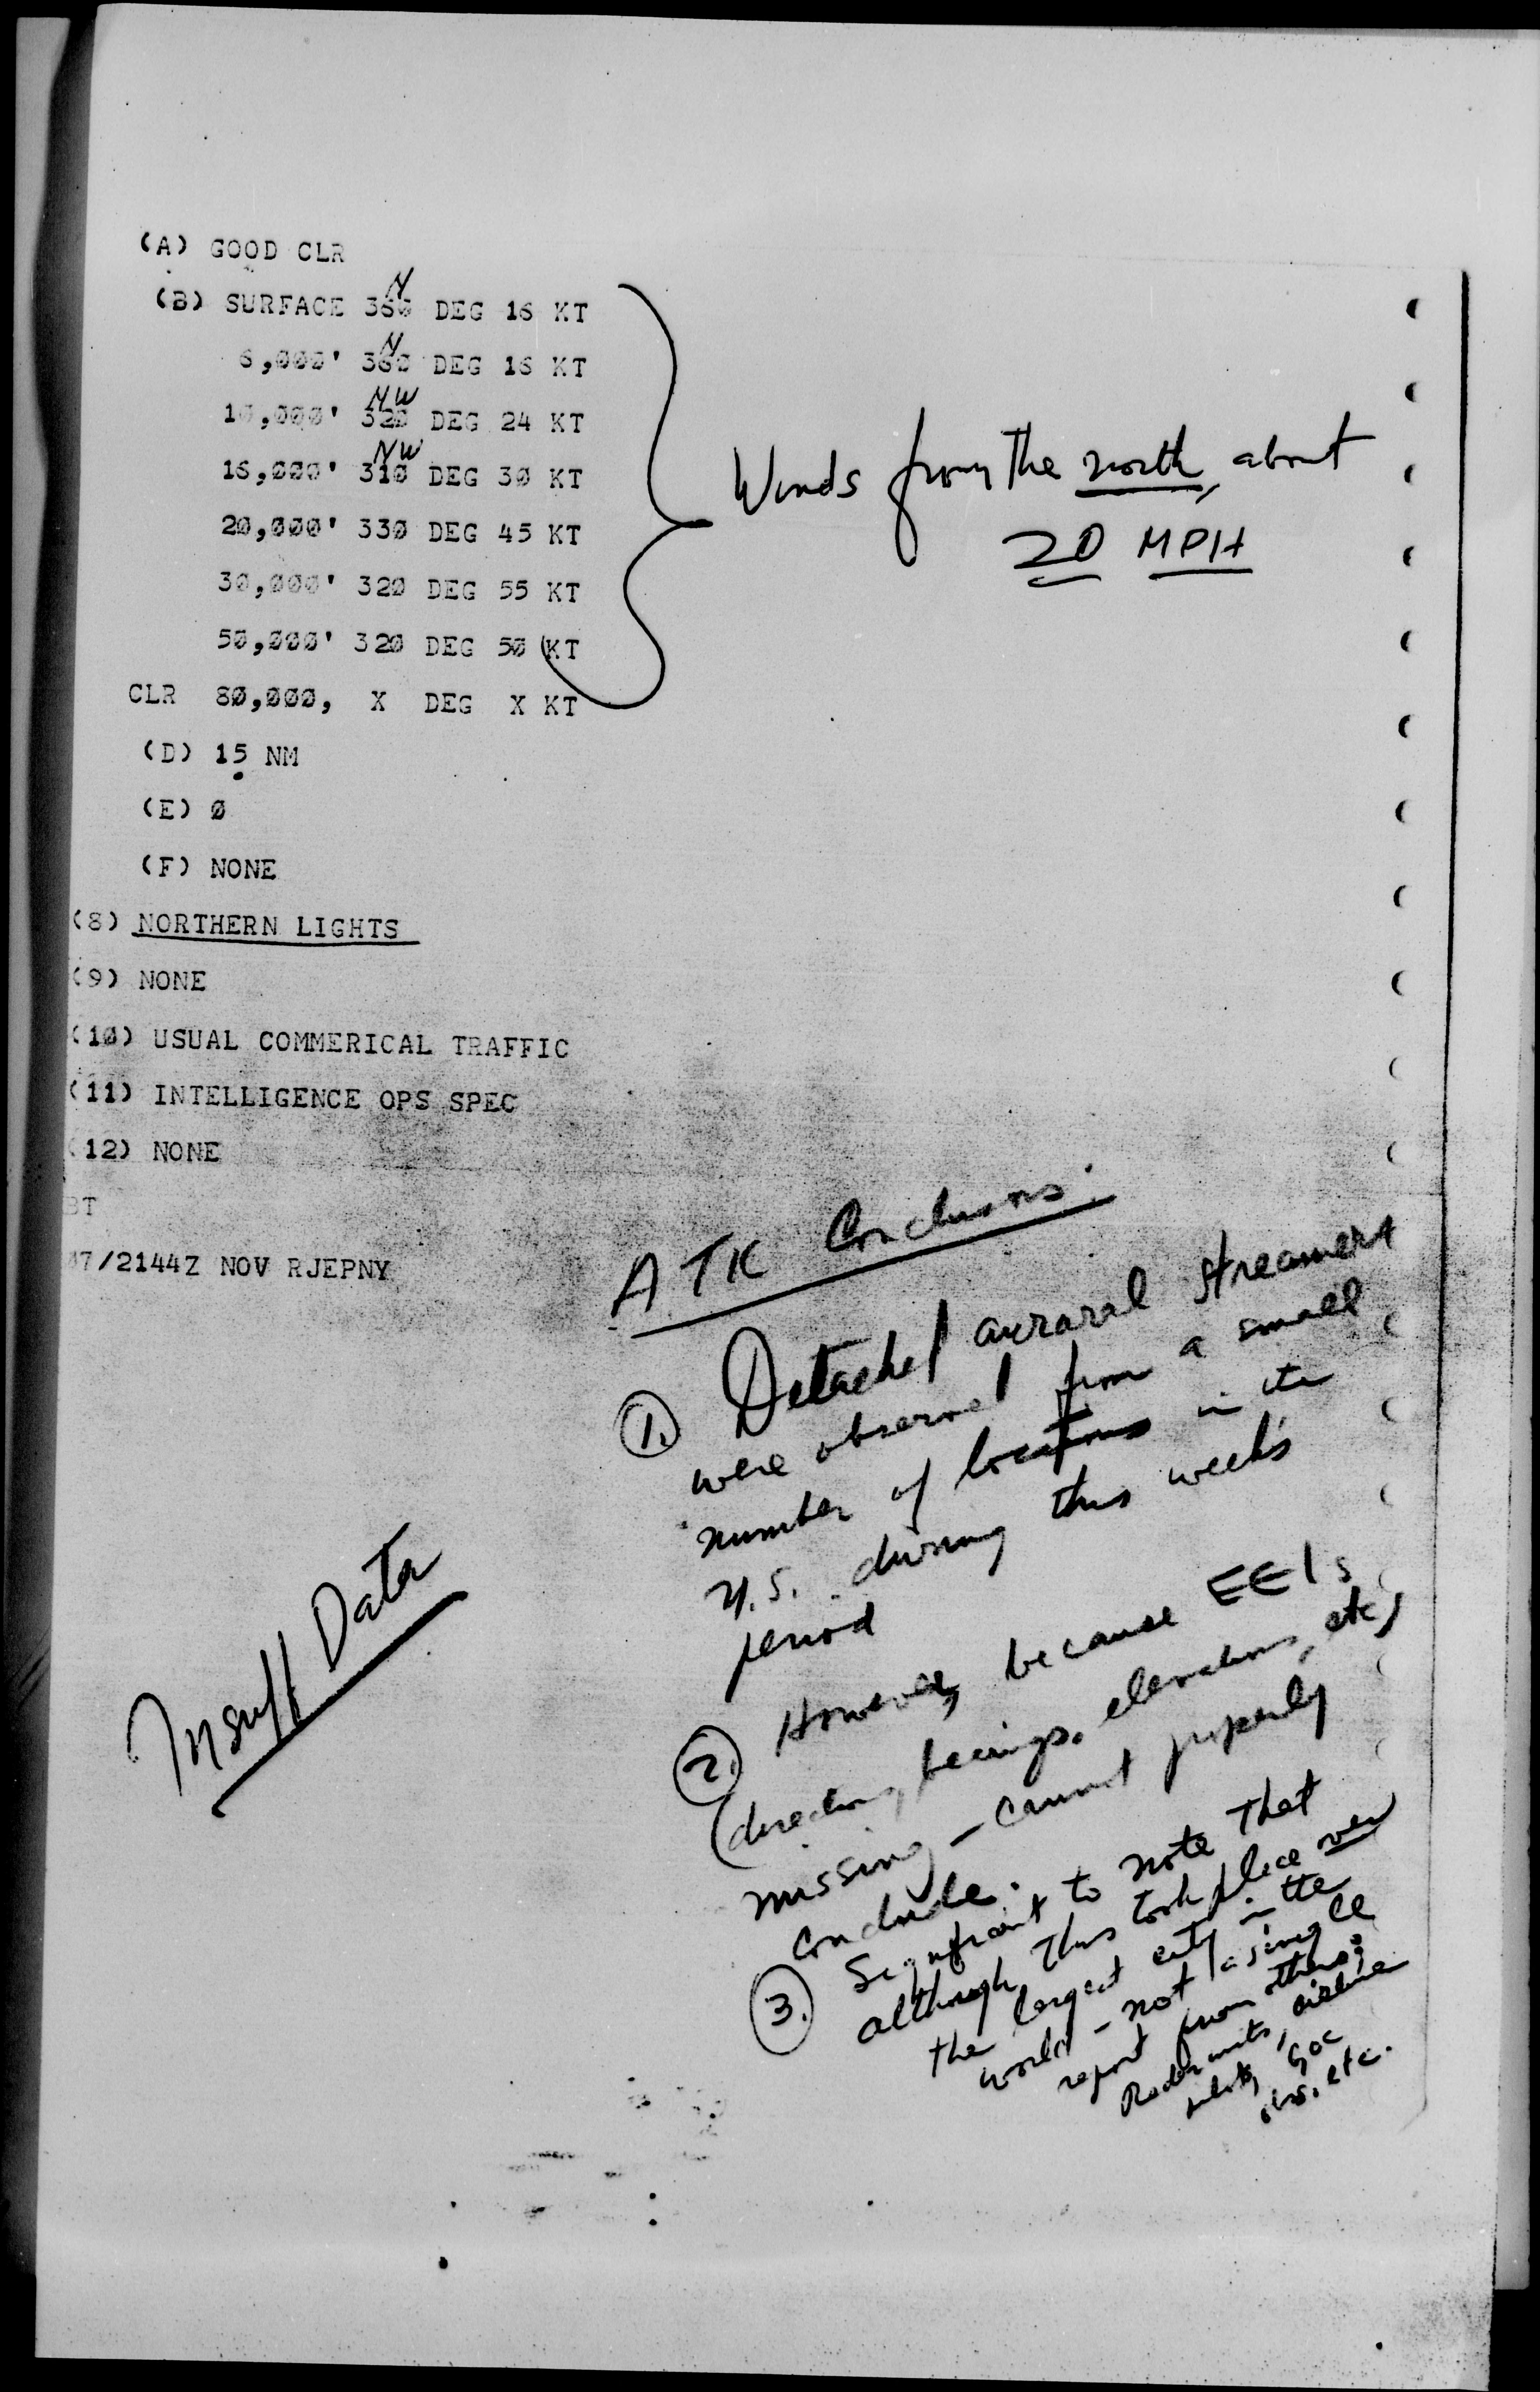 (A) GOOD CLR
N
(B) SURFACE 360 DEG 16 KT
N
6,000' 360 DEG 16 KT
NW
10,000' 320 DEG 24 KT
NW
16,000' 310 DEG 30 KT
20,000' 330 DEG 45 KT
30,000' 320 DEG 55 KT
50,000' 320 DEG 50 KT
CLR 80,000, X DEG X KT
Winds from the north, about
20 MPH
(D) 15 NM
(E) 0
(F) NONE
(8) NORTHERN LIGHTS
(9) NONE
(10) USUAL COMMERICAL TRAFFIC
(11) INTELLIGENCE OPS SPEC
(12) NONE
BT
17/2144Z NOV RJEPNY
Insuff Data
ATIC Conclusions:
1. Detached auroral streamers
were observed from a small
number of locations in the
U.S. during this week's
period
2. However, because EEI's
(direction, bearings, elevations, etc)
missing – cannot properly
conclude.
3. Significant to note that
although this took place over
the largest city in the
world – not a single
report from others;
Radar units, airline
pilots, GOC
obs. etc.